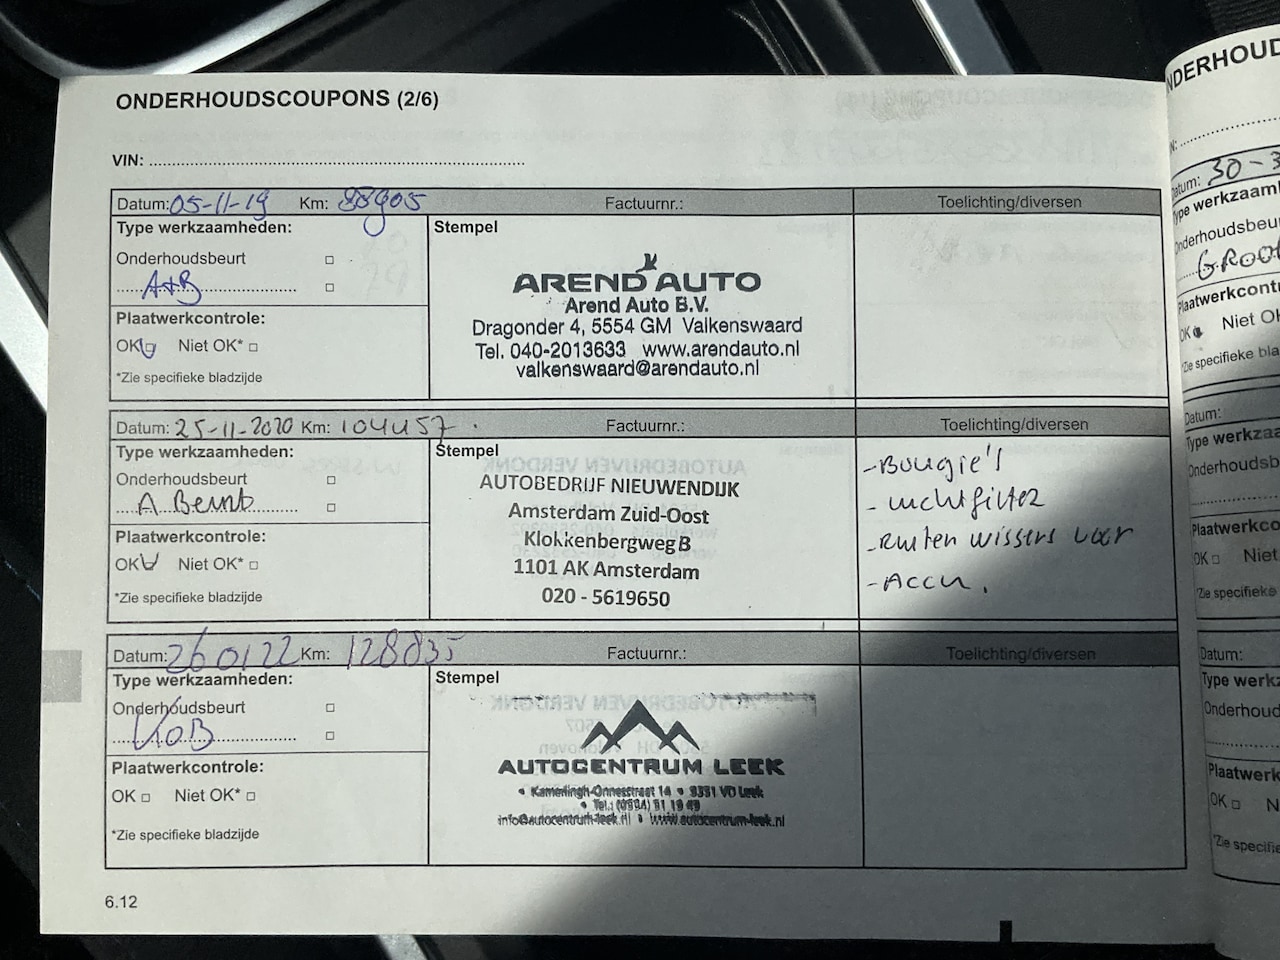 ONDERHOUDSCOUPONS (2/6)
VIN:
Datum: 05-11-19 Km: 88905 Factuurnr.: Toelichting/diversen
Type werkzaamheden: Stempel
Onderhoudsbeurt
A+B
Plaatwerkcontrole:
OK Niet OK*
*Zie specifieke bladzijde
AREND AUTO
Arend Auto B.V.
Dragonder 4, 5554 GM Valkenswaard
Tel. 040-2013633 www.arendauto.nl
valkenswaard@arendauto.nl
Datum: 25-11-2020 Km: 104457 Factuurnr.: Toelichting/diversen
Type werkzaamheden: Stempel
Onderhoudsbeurt
A Beurt
Plaatwerkcontrole:
OK Niet OK*
*Zie specifieke bladzijde
AUTOBEDRIJF NIEUWENDIJK
Amsterdam Zuid-Oost
Klokkenbergweg B
1101 AK Amsterdam
020 - 5619650
- Bougie's
- Luchtfilter
- Ruiten wissers voor
- Accu.
Datum: 260122 Km: 128835 Factuurnr.: Toelichting/diversen
Type werkzaamheden: Stempel
Onderhoudsbeurt
Plaatwerkcontrole:
OK Niet OK*
*Zie specifieke bladzijde
AUTOCENTRUM LEEK
• Kamerlingh-Onnesstraat 14 • 9351 VD Leek
• Tel.: (0594) 51 19 49
info@autocentrum-leek.nl • www.autocentrum-leek.nl
6.12
30-3
OK Niet OK
Datum:
OK Niet
Datum:
OK